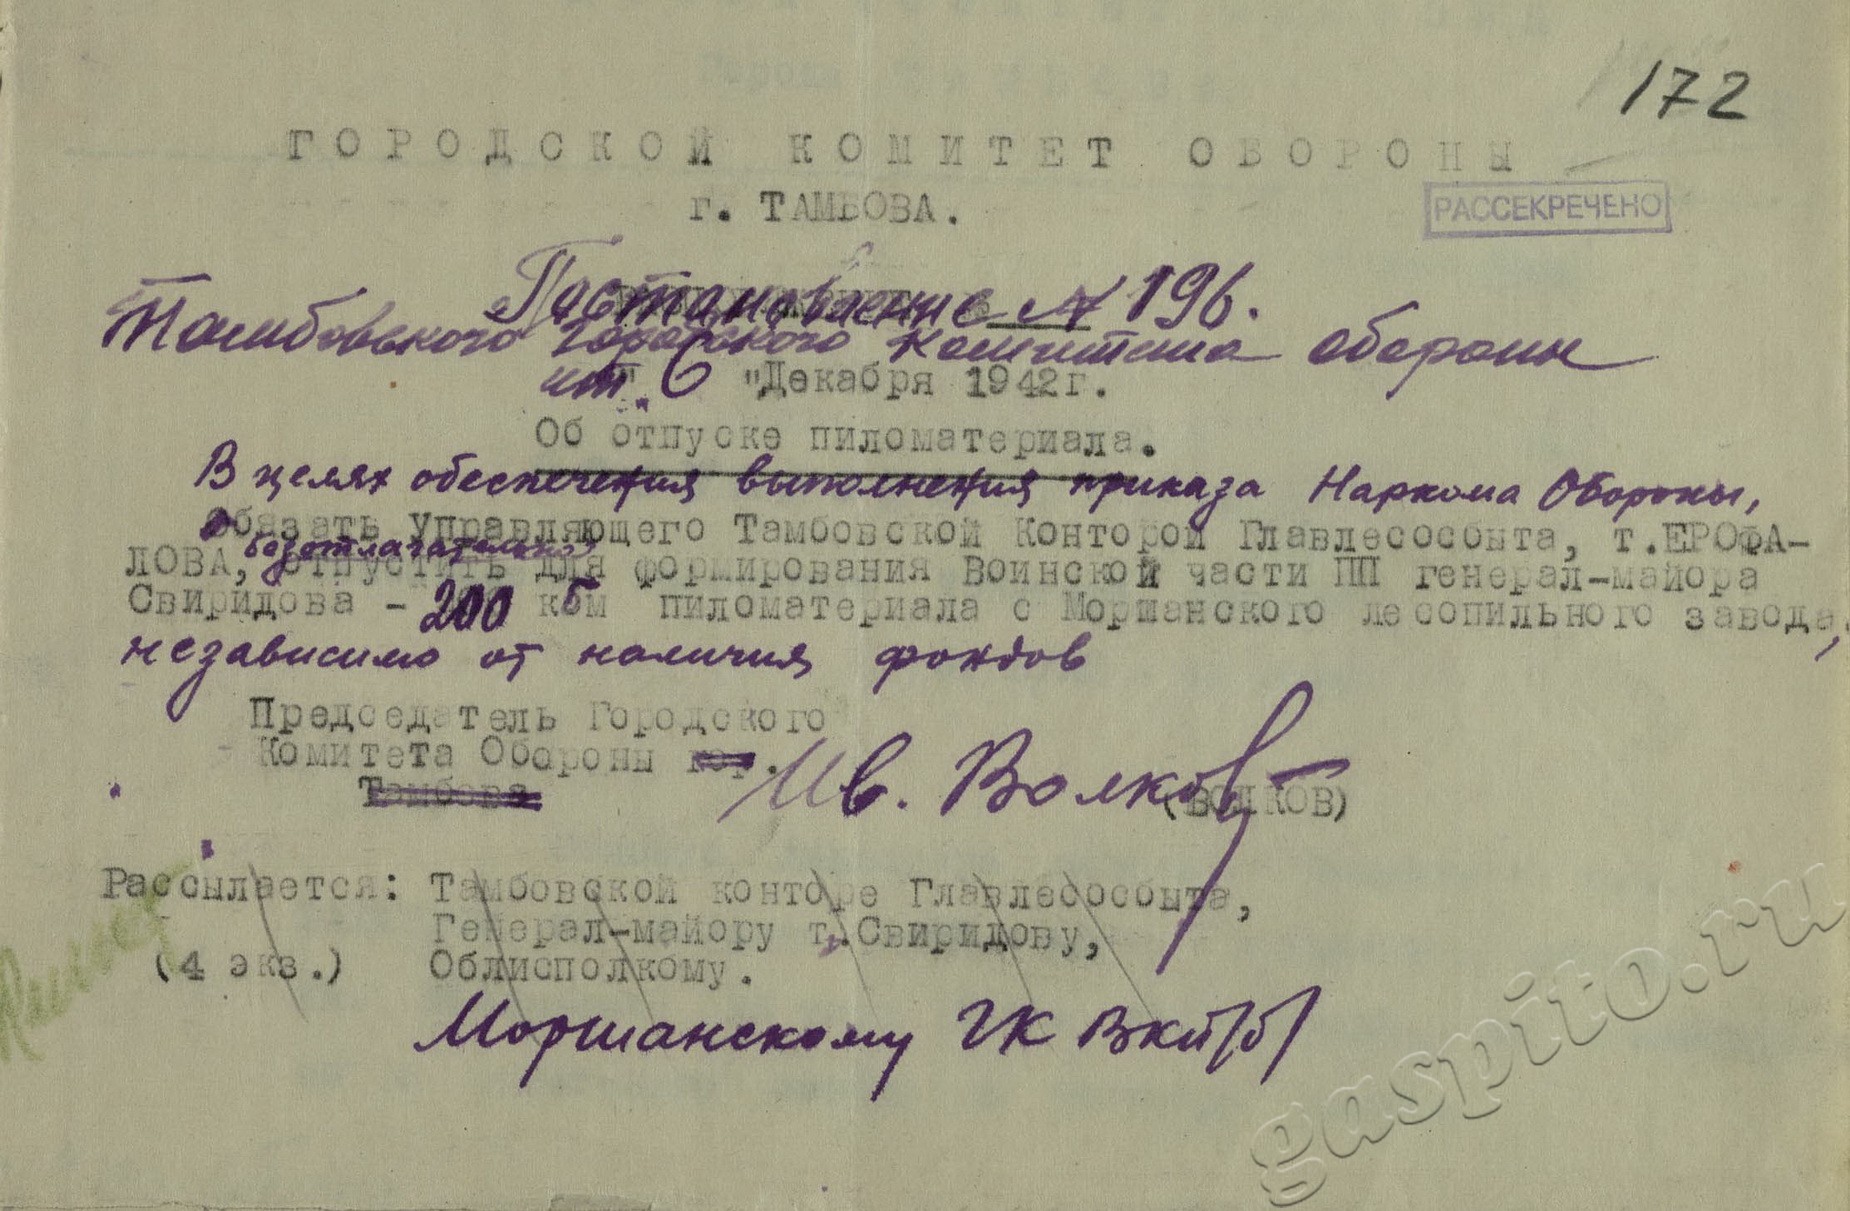 172
ГОРОДСКОЙ КОМИТЕТ ОБОРОНЫ
г. ТАМБОВА.
РАССЕКРЕЧЕНО
Постановление № 196.
Тамбовского Городского Комитета обороны
от "6 "Декабря 1942г.
Об отпуске пиломатериала.
В целях обеспечения выполнения приказа Наркома Обороны,
обязать управляющего Тамбовской Конторой Главлесосбыта, т.ЕРОФА-
безотлагательно
ЛОВА, отпустить для формирования Воинской части ПП генерал-майора
Свиридова - 200 кбм пиломатериала с Моршанского лесопильного завода,
независимо от наличия фондов
Председатель Городского
Комитета Обороны гор.
Тамбова
Ив. Волков
(ВОЛКОВ)
Рассылается: Тамбовской конторе Главлесосбыта,
Генерал-майору т.Свиридову,
(4 экз.) Облисполкому.
Моршанскому ГК ВКП/б/
gaspito.ru